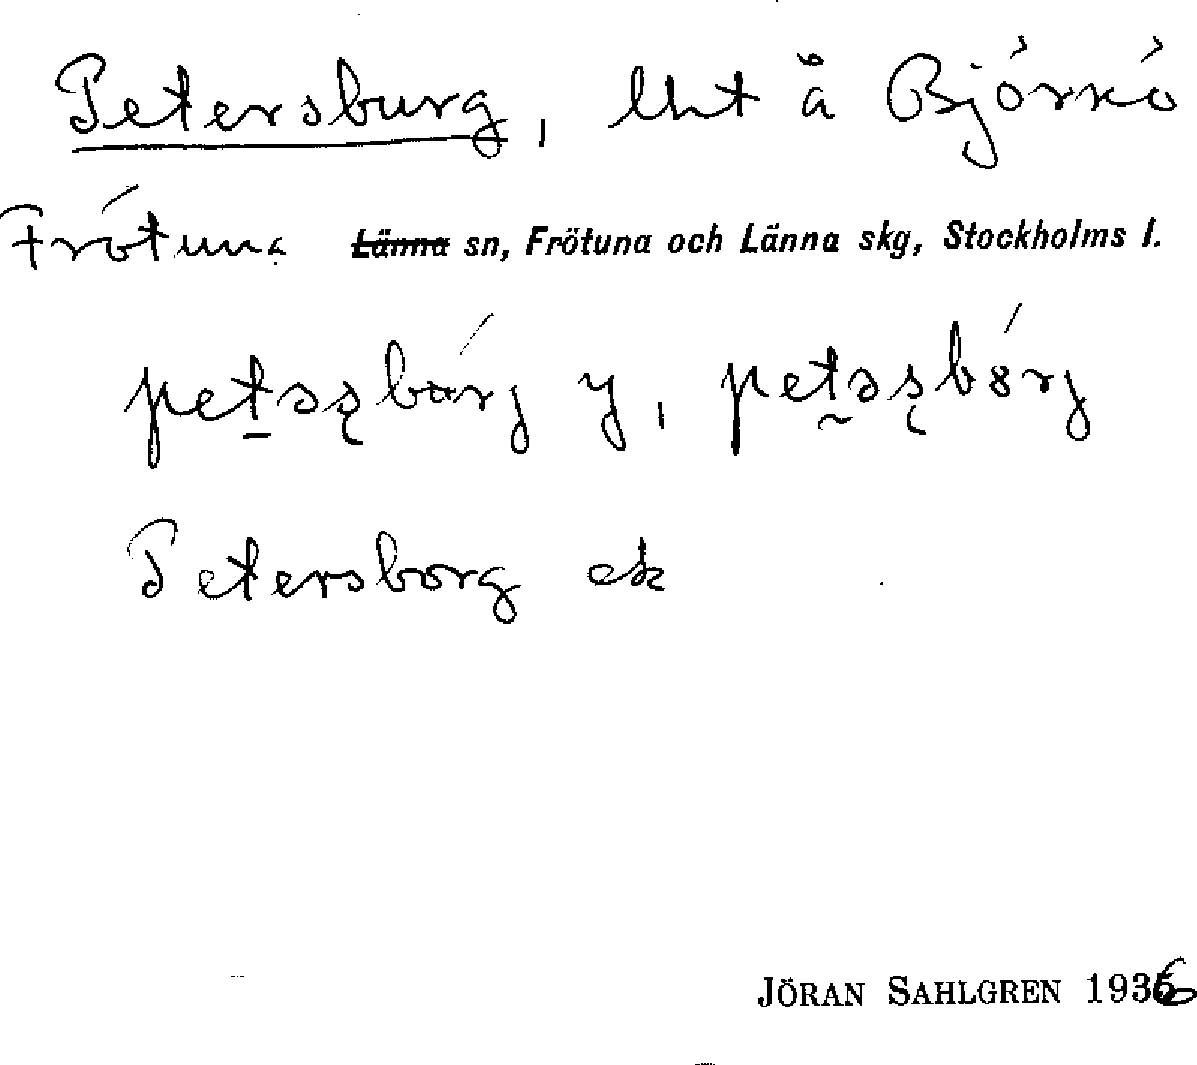 Petersburg, lht å Björkö
Frötuna Länna sn, Frötuna och Länna skg, Stockholms l.
y,
Petersborg ek
JÖRAN SAHLGREN 1936